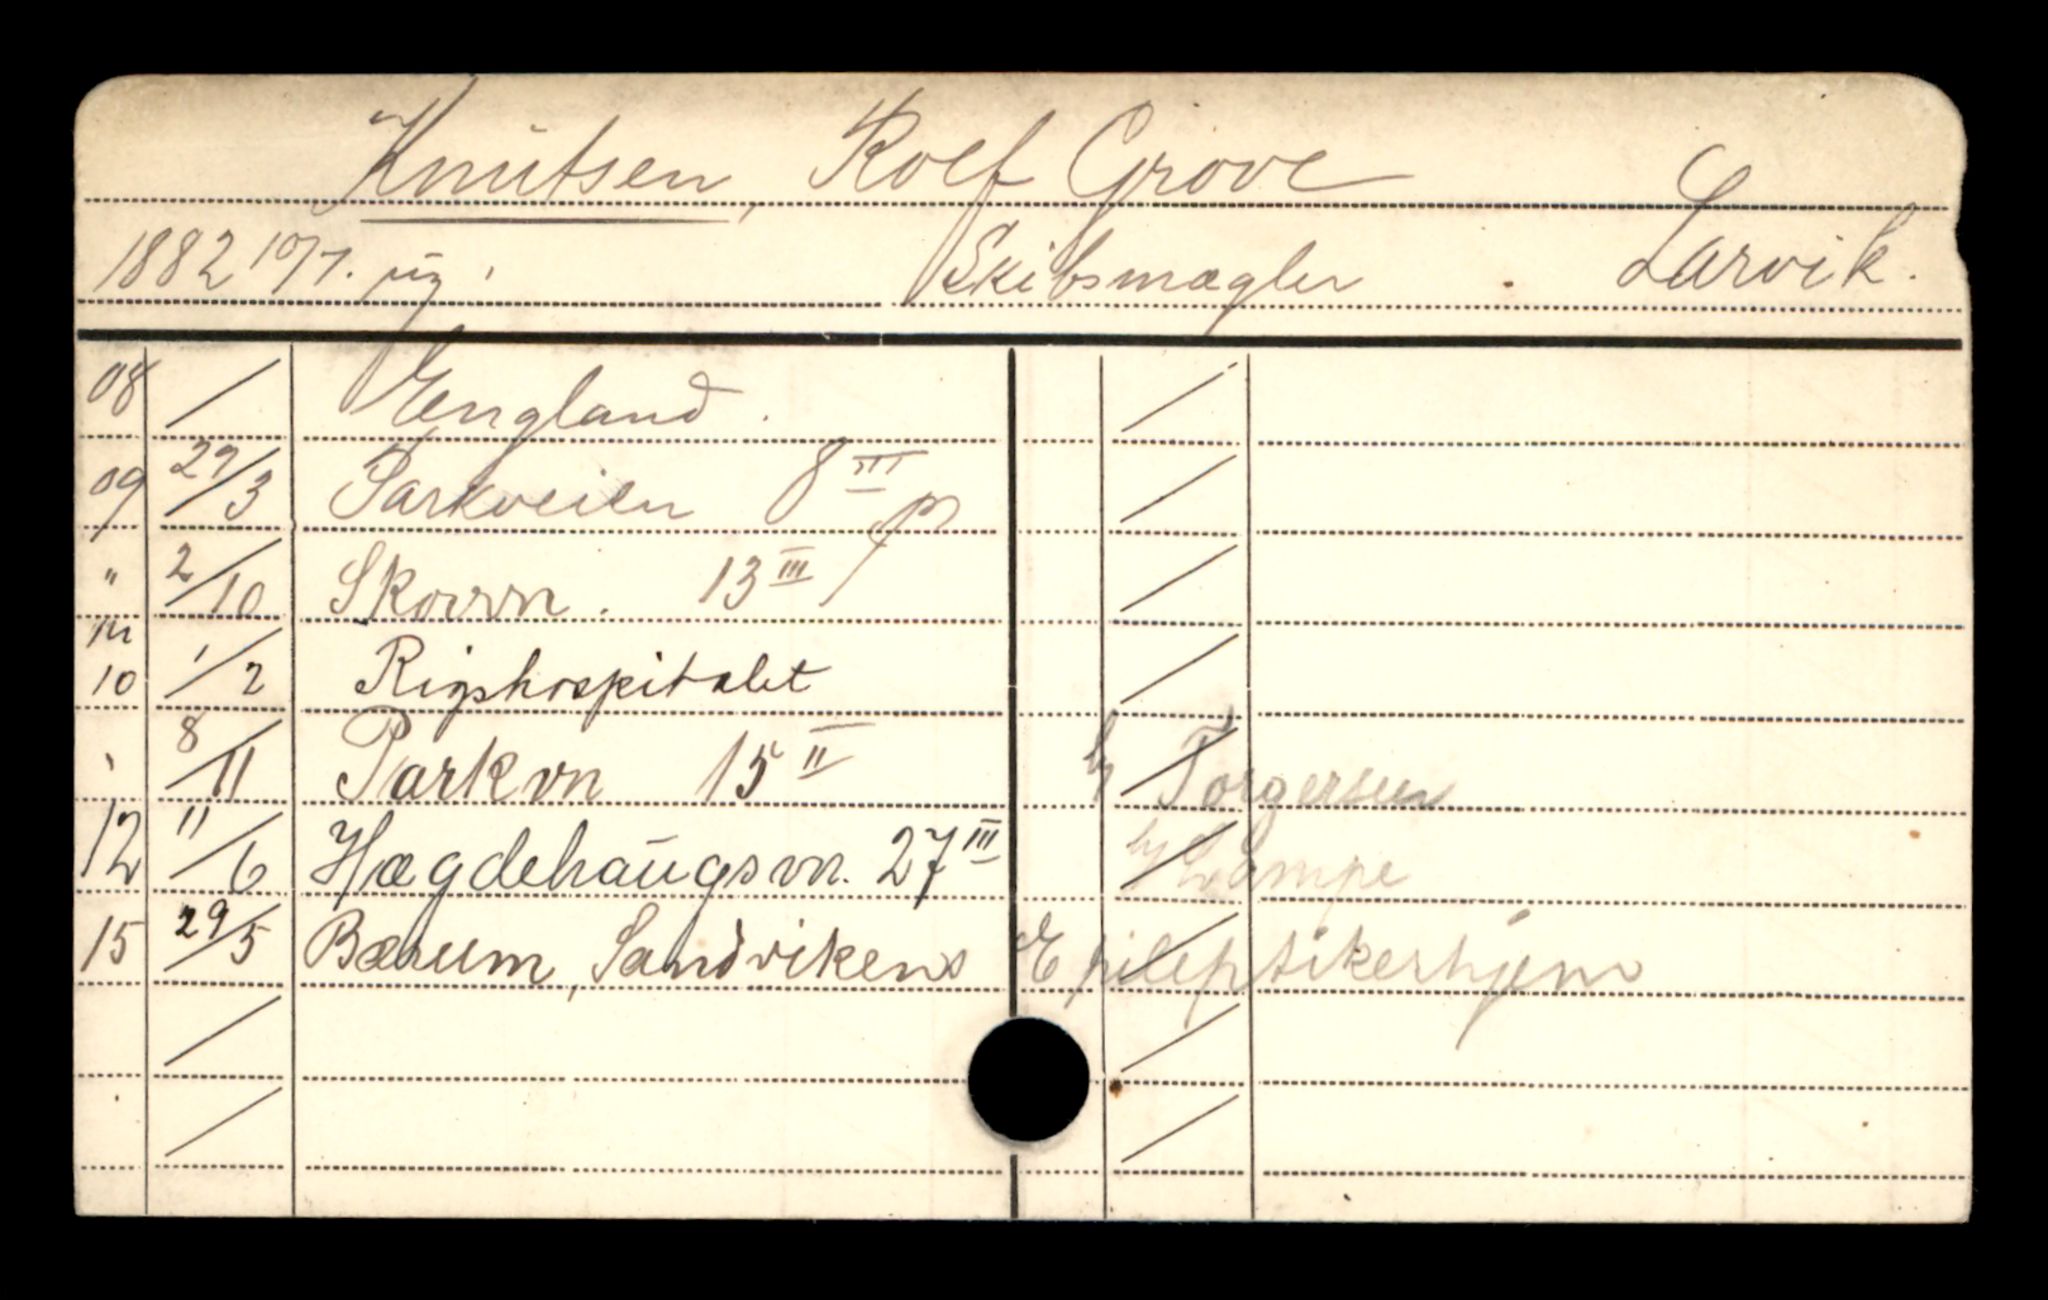 Knutsen, Rolf Grove
1882 10/7. ug. Skibsmægler Larvik.
08 / England.
09 29/3 Parkveien 8 III
" 2/10 Skovvn. 13 III
10 1/2 Rigshospitalet
8/11 Parkvn 15 II Torgersen
12 11/6 Hægdehaugsvn. 27 III Lampe
15 29/5 Bærum, Sandvikens Epileptikerhjem